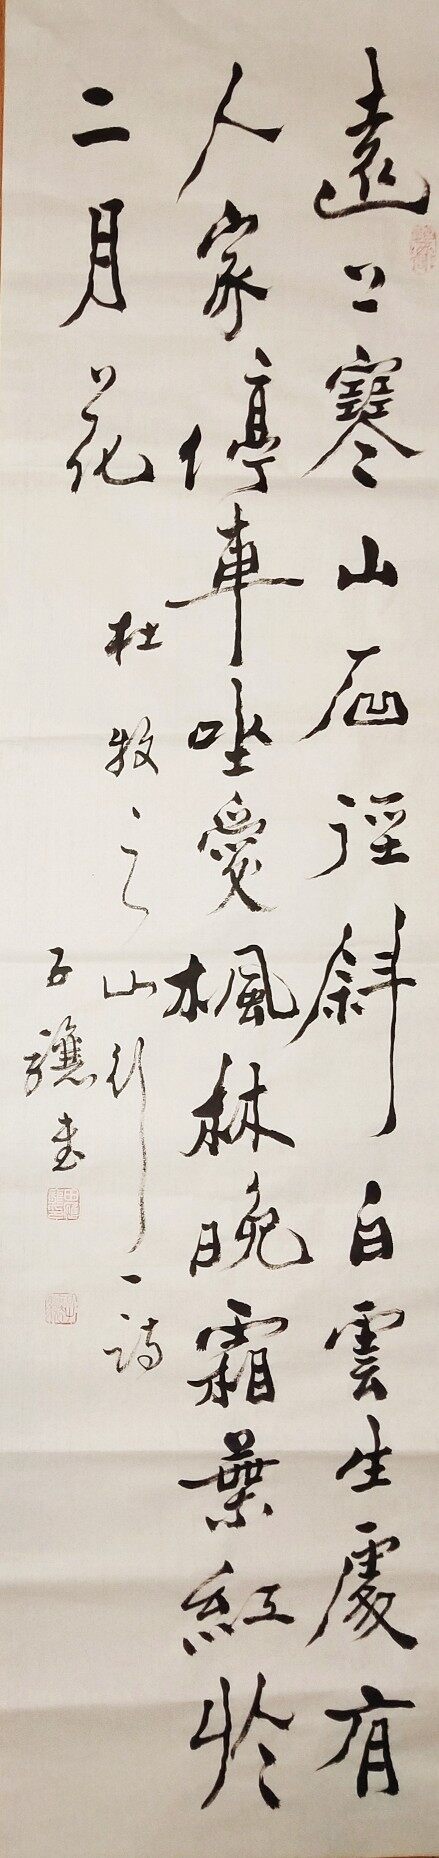 遠上寒山石徑斜白雲生處有
人家停車坐愛楓林晚霜葉紅於
二月花
杜牧之山行一詩
子驤書